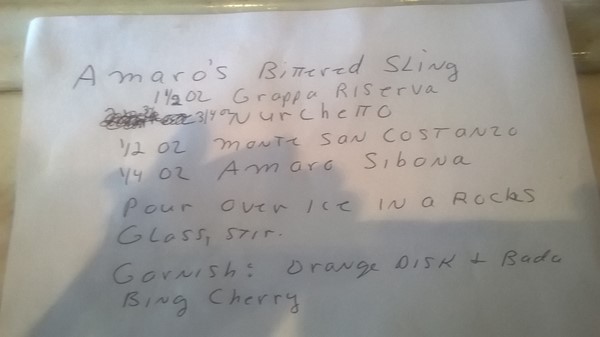 Amaro's Bittered Sling
1 1/2 oz Grappa Riserva
3/4 oz Nurchetto
1/2 oz Monte San Costanzo
1/4 oz Amaro Sibona
Pour over Ice in a Rocks
Glass, stir.
Garnish: Orange Disk + Bada
Bing Cherry